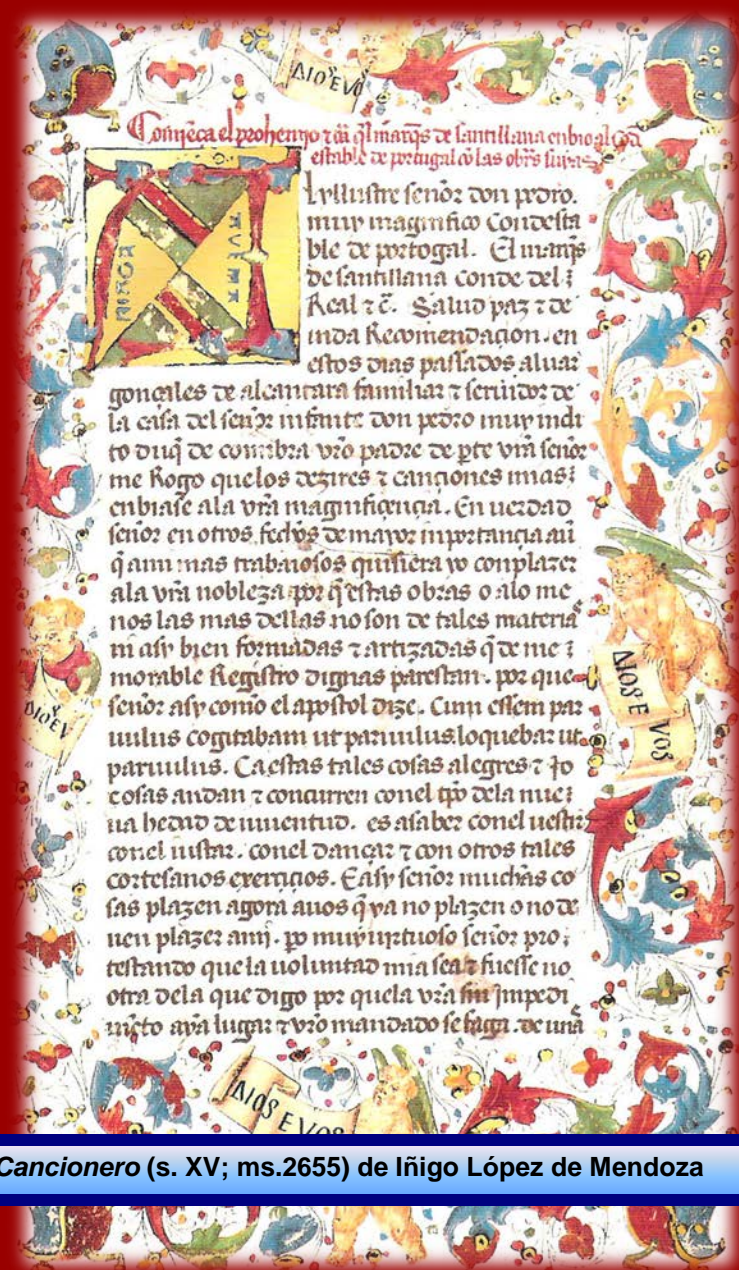 DIOS E VO
Comiẽca el prohemio ⁊ cã q̃l marq̃s de santillana enbio al Cõd
estable de portugal cõ las obr̃s suyas
AVE MA
Lyllustre señor don pedro.
muy magnifico Condesta
ble de portogal. El marq̃s
de santillana conde del
Real ⁊ c̃. Salud paz ⁊ de
uida Recomendaçion. en
estos dias passados aluar
gonçales de alcantara familiar ⁊ seruidor de
la casa del señor infante don pedro muy indi
to duq̃ de coimbra vr̃o padre de p̱te vr̃a señor
me Rogo quelos dezires ⁊ cançiones mias
enbiase ala vr̃a magnifiçençia. En uerdad
señor en otros fechos de mayor inportançia aũ
q̃ ami mas trabaiosos quisiera yo conplazer
ala vr̃a nobleza por q̃ estas obras o alo me
nos las mas dellas no son de tales materiã
ni asy bien formadas ⁊ artizadas q̃ de me
morable Registro dignas parescan. por que
señor asy como el apostol dize. Cum essem par
uulus cogitabam ut paruulus loquebar ut
paruulus. Ca estas tales cosas alegres ⁊ Jo
cosas andan ⁊ concurren conel tp̃o dela nue
ua hedad de iuuentud. es asaber conel uestir
conel iustar. conel dançar ⁊ con otros tales
cortesanos exerçiçios. E asy señor muchas co
sas plazen agora auos q̃ ya no plazen o no de
uen plazer ami. po muy uirtuoso señor pro
testando que la uoluntad mia sea ⁊ fuesse no
otra dela que digo por quela vr̃a sin Jmpedi
miẽto aya lugar ⁊ vr̃o mandado se faga. de unã
DIOS E V
DIOS E VOS
DIOS E VOS
Cancionero (s. XV; ms.2655) de Iñigo López de Mendoza